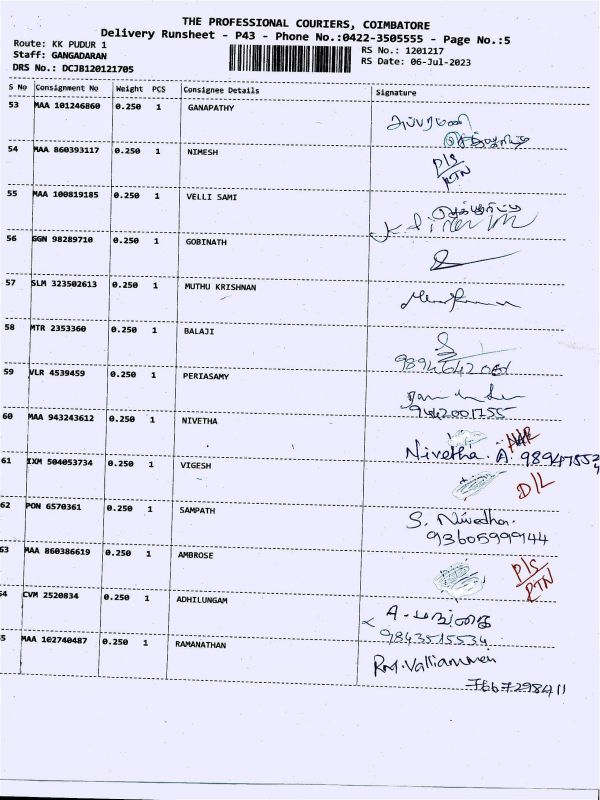 THE PROFESSIONAL COURIERS, COIMBATORE
Delivery Runsheet - P43 - Phone No.:0422-3505555 - Page No.:5
Route: KK PUDUR 1
RS No.: 1201217
Staff: GANGADARAN
RS Date: 06-Jul-2023
DRS No.: DCJB120121705
S No Consignment No Weight PCS Consignee Details Signature
53 MAA 101246860 0.250 1 GANAPATHY
54 MAA 860393117 0.250 1 NIMESH P/S
RTN
55 MAA 100819185 0.250 1 VELLI SAMI
56 GGN 98289710 0.250 1 GOBINATH
57 SLM 323502613 0.250 1 MUTHU KRISHNAN
58 MTR 2353360 0.250 1 BALAJI
59 VLR 4539459 0.250 1 PERIASAMY
9442001755
60 MAA 943243612 0.250 1 NIVETHA
Nivetha. A.
61 IXM 504053734 0.250 1 VIGESH D/L
62 PON 6570361 0.250 1 SAMPATH S. Nivedha.
9360599944
63 MAA 860386619 0.250 1 AMBROSE P/S
RTN
54 CVM 2520834 0.250 1 ADHILUNGAM A-
9843515534
5 MAA 102740487 0.250 1 RAMANATHAN RM.Valliammai
7667298411